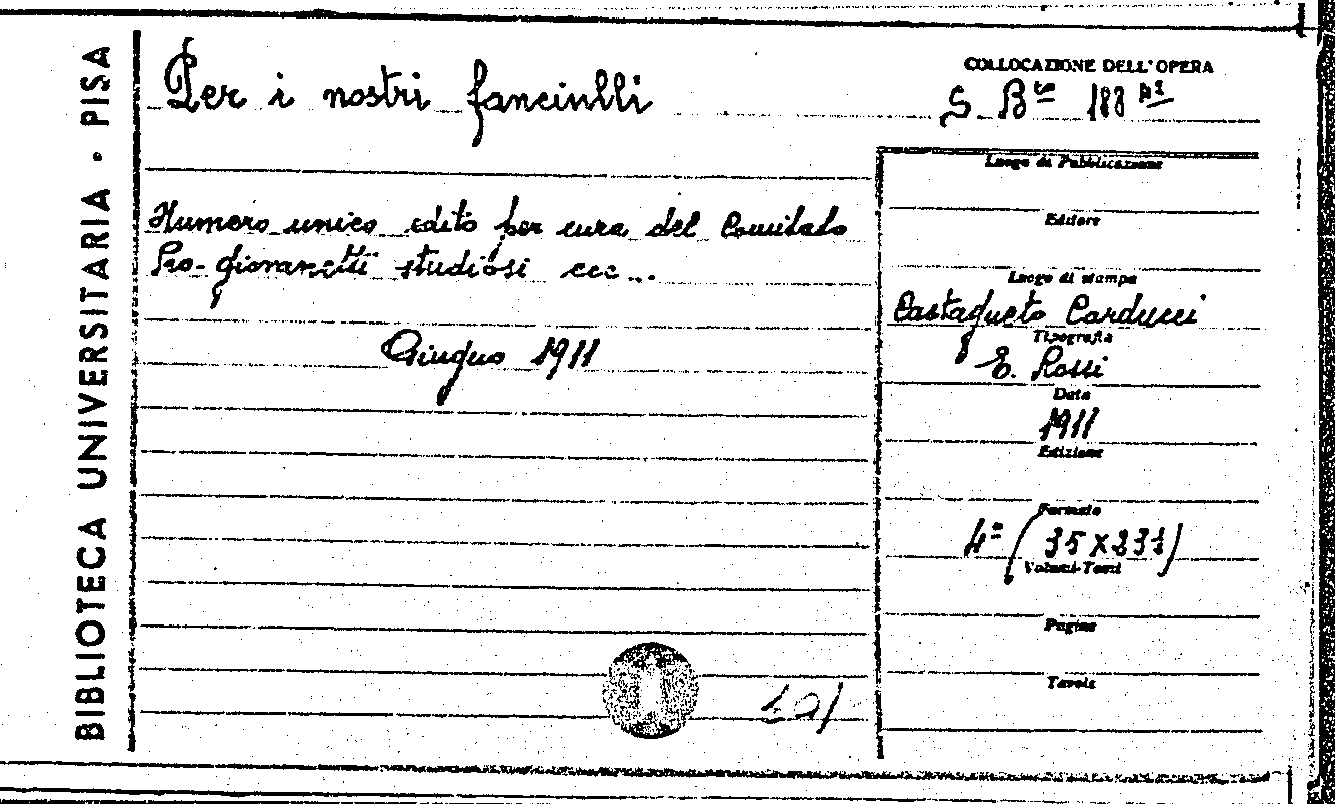 BIBLIOTECA UNIVERSITARIA · PISA
Per i nostri fanciulli
COLLOCAZIONE DELL'OPERA
S. B
Luogo di Pubblicazione
Numero unico edito per cura del Comitato
Editore
Pro-giovanetti studiosi ecc...
Luogo di stampa
Castagneto Carducci
Tipografia
Giugno 1911
E. Rossi
Data
1911
Edizione
Formato
4º (35 X
Volumi-Tomi
Pagine
Tavole